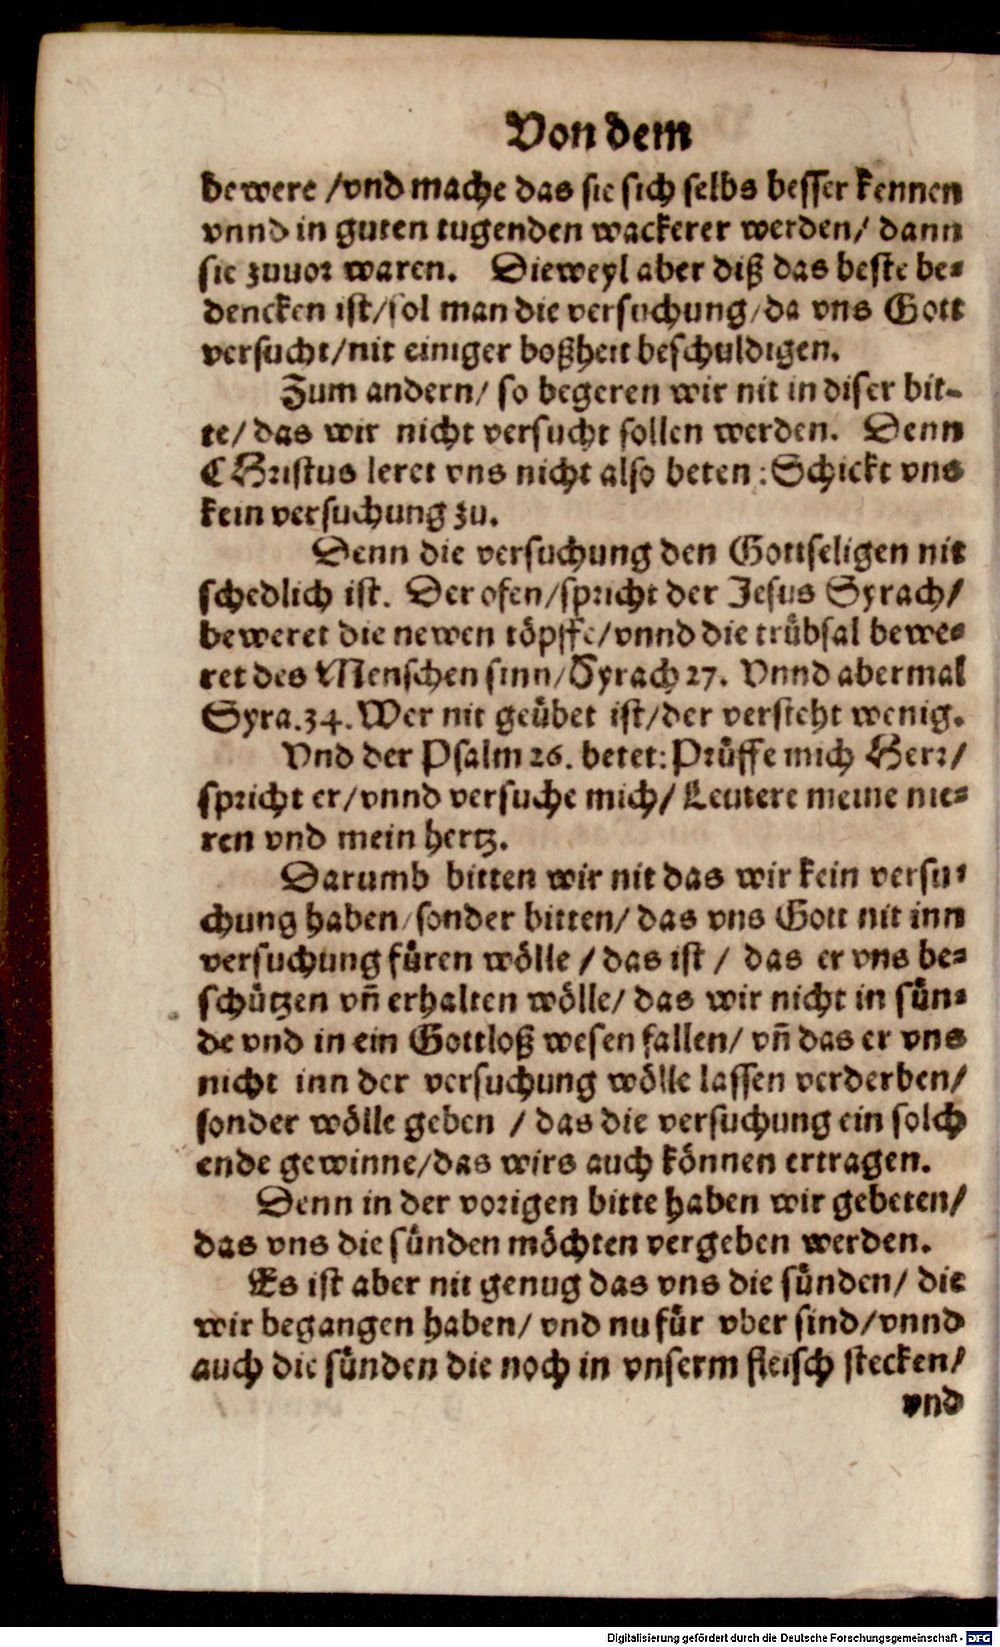 Von dem
bewere /vnd mache das sie sich selbs besser kennen
vnnd in guten tugenden wackerer werden/ dann
sie zuuor waren. Dieweyl aber diß das beste be-
dencken ist/sol man die versuchung/da vns Gott
versucht/nit einiger boßheit beschuldigen.
Zum andern/ so begeren wir nit in diser bit-
te/ das wir nicht versucht sollen werden. Denn
CHristus leret vns nicht also beten: Schickt vns
kein versuchung zu.
Denn die versuchung den Gottseligen nit
schedlich ist. Der ofen/spricht der Jesus Syrach/
beweret die newen töpffe/vnnd die trübsal bewe-
ret des Menschen sinn/Syrach 27. Vnnd abermal
Syra.34. Wer nit geübet ist/der versteht wenig.
Vnd der Psalm 26. betet: Prüffe mich Herr/
spricht er/vnnd versuche mich/ Leutere meine nie-
ren vnd mein hertz.
Darumb bitten wir nit das wir kein versu-
chung haben/sonder bitten/ das vns Gott nit inn
versuchung füren wölle / das ist / das er vns be-
schützen vñ erhalten wölle/ das wir nicht in sün-
de vnd in ein Gottloß wesen fallen/ vñ das er vns
nicht inn der versuchung wölle lassen verderben/
sonder wölle geben / das die versuchung ein solch
ende gewinne/das wirs auch können ertragen.
Denn in der vorigen bitte haben wir gebeten/
das vns die sünden möchten vergeben werden.
Es ist aber nit genug das vns die sünden/ die
wir begangen haben/ vnd nu für vber sind/vnnd
auch die sünden die noch in vnserm fleisch stecken/
vnd
Digitalisierung gefördert durch die Deutsche Forschungsgemeinschaft - DFG